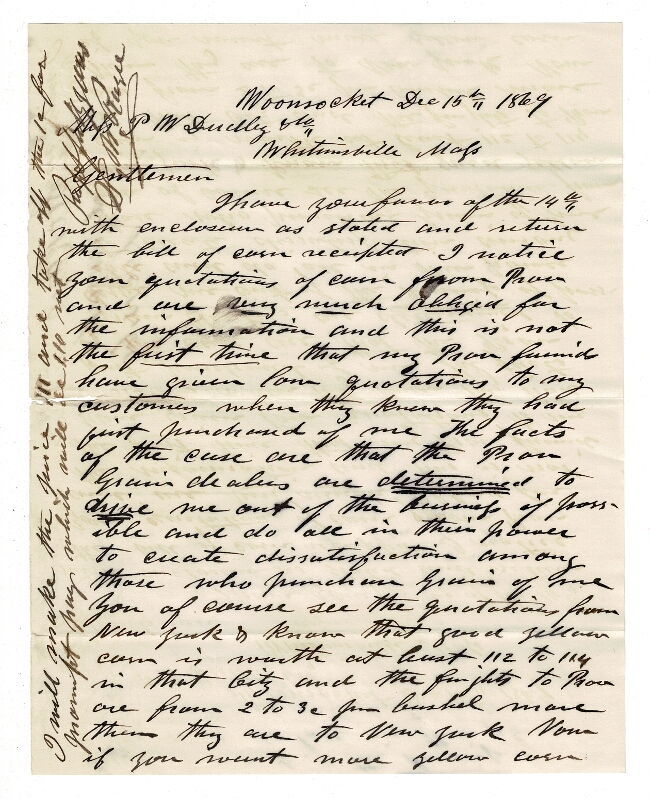 Woonsocket Dec 15th 1869
Mess P W Dudley & Co
Whitinsville Mass
Gentlemen
I have your favor of the 14th
with enclosures as stated and return
the bill of corn receipted I notice
your quotations of corn from Prov
and are very much obliged for
the information and this is not
the first time that my Prov friends
have given low quotations to my
customers when they know they had
just purchased of me The facts
of the case are that the Prov
Grain dealers are determined to
drive me out of the business if poss-
ible and do all in their power
to create dissatisfaction among
those who purchase Grain of me
You of course see the quotations from
New York & know that good yellow
corn is worth at least 112 to 114
in that City and the freights to Prov
are from 2 to 3c per bushel more
than they are to New York Now
if you want more yellow corn
I will make the price 111 and take off the 1c for
prompt pay which will be 110 net